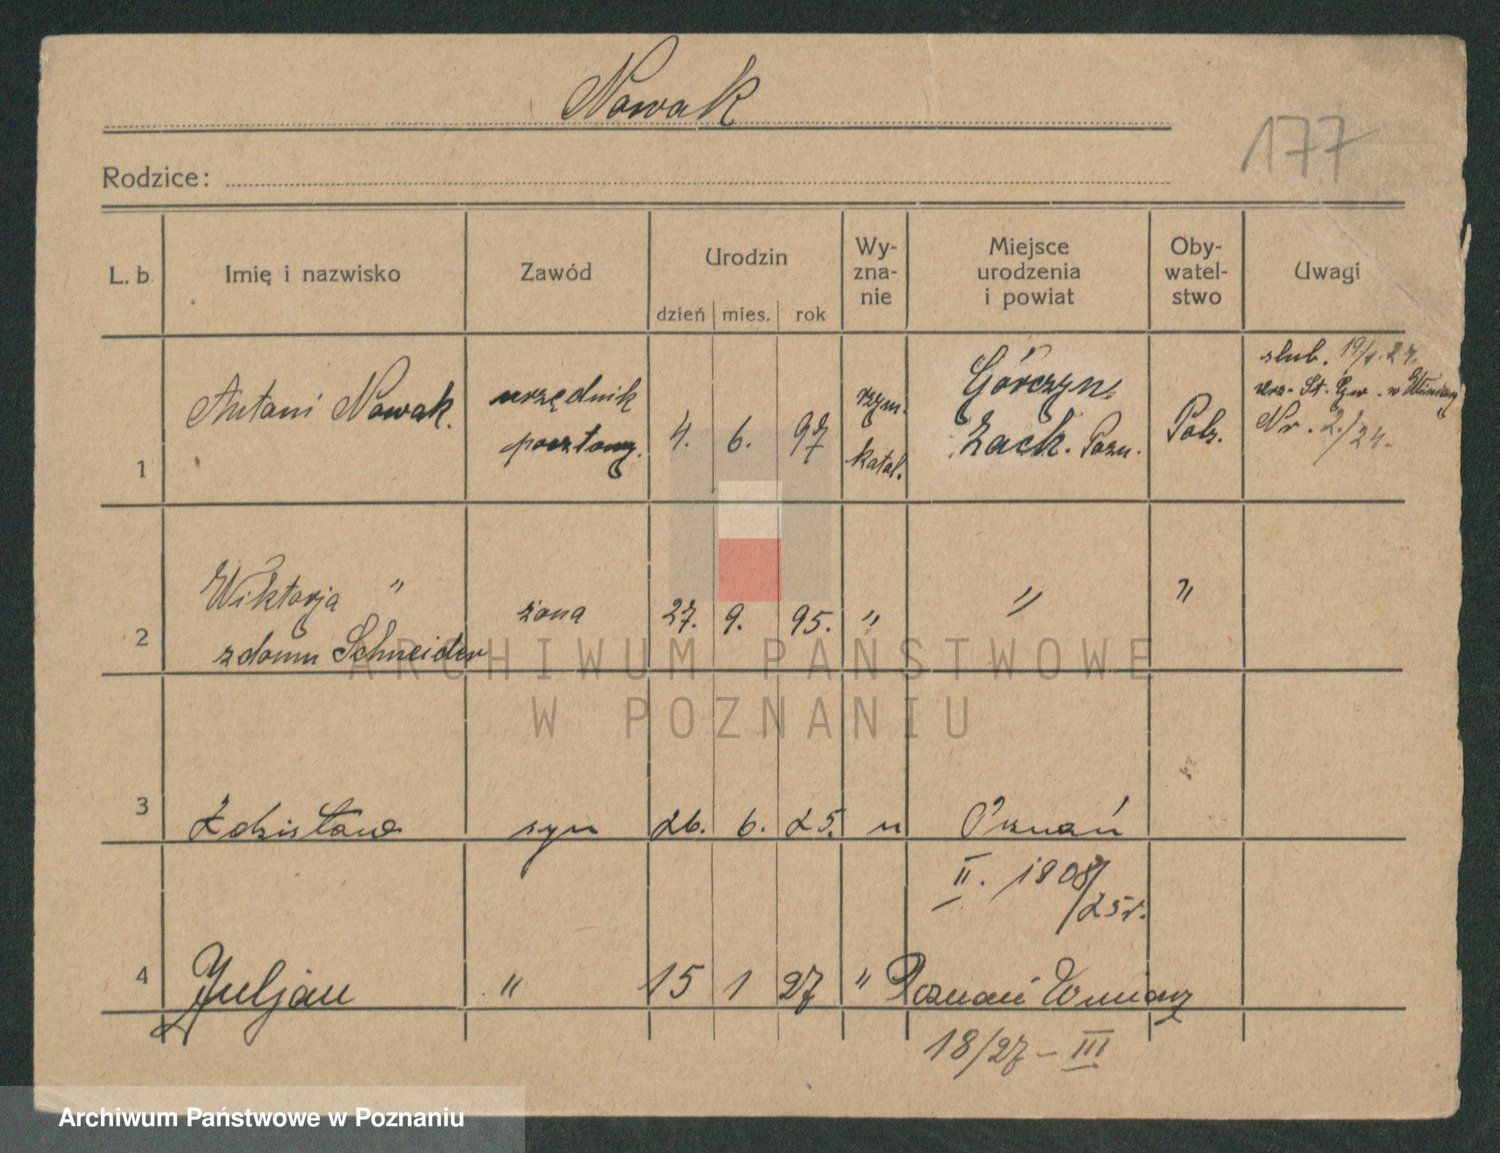 Nowak
177
Rodzice:
L. b. Imię i nazwisko Zawód Urodzin dzień mies. rok Wy-zna-nie Miejsce urodzenia i powiat Oby-watel-stwo Uwagi
1 Antoni Nowak. urzędnik pocztowy. 4. 6. 97 rzym. katol. Górczyn, Zach. Pozn. Pols.
ślub. 19/1.24.
St. Cyw. w
Nr. 2./24.
2 Wiktorja " żona 27. 9. 95. " " "
z domu Schneider
3 Zdzisław syn 26. 6. 25. " Poznań
II. 1908/25r.
4 Juljan " 15 1 27 " Poznań Winiary
18/27 – III
ARCHIWUM PAŃSTWOWE
W POZNANIU
Archiwum Państwowe w Poznaniu